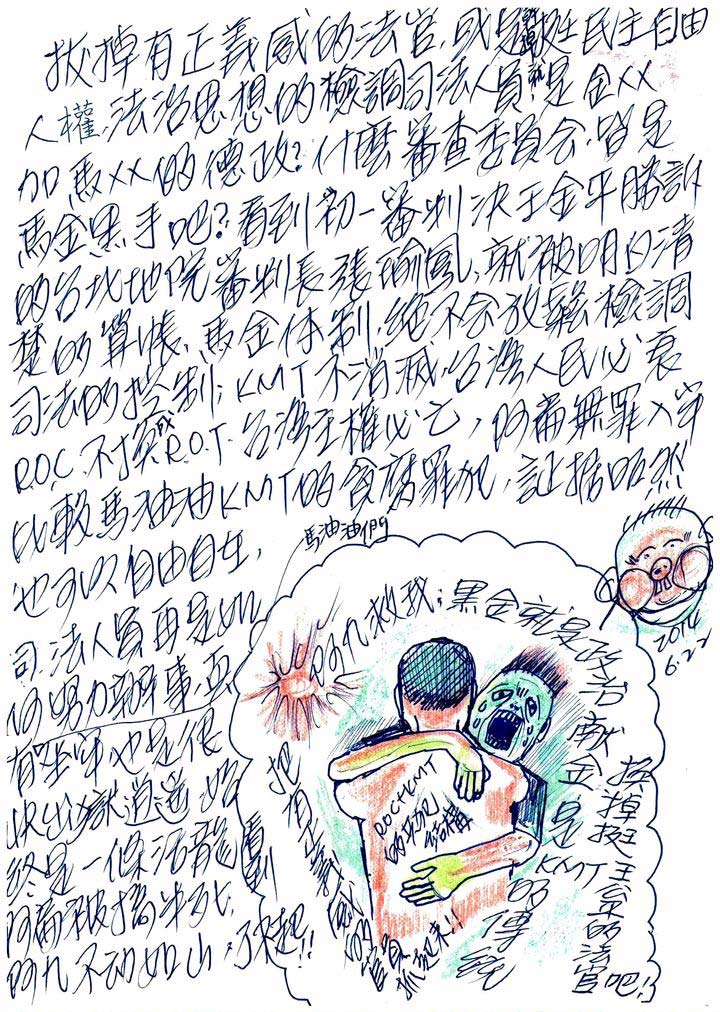 拔掉有正義感的法官,或是挺民主自由
人權,法治思想的檢調司法人員,就是金XX
加馬XX的德政?什麼審查委員会,皆是
馬金黑手吧?看到初一審判決王金平勝訴
的台北地院審判長張瑜鳳,就被明白清
楚的算帳,馬金体制,絕不会放鬆檢調
司法的控制;KMT不消滅,台灣人民必衰
R.O.C.不變成R.O.T.台灣主權必亡,阿扁無罪入牢
比較馬油油KMT的貪腐罪犯,証据昭然
也可以自由自在,
司法人員再是如
何努力辦事,真
有坐牢也是很
快出獄逍遙,始
終是一條活龍,看到
阿扁被搞半死,
阿九不动如山,
馬油油們
阿九救我;黑金就是政治献金
是KMT的傳統
把有正義感的官員抓起來!!
換掉挺王京的法官吧!!
ROCKMT
的共犯
結構
2014
6.22